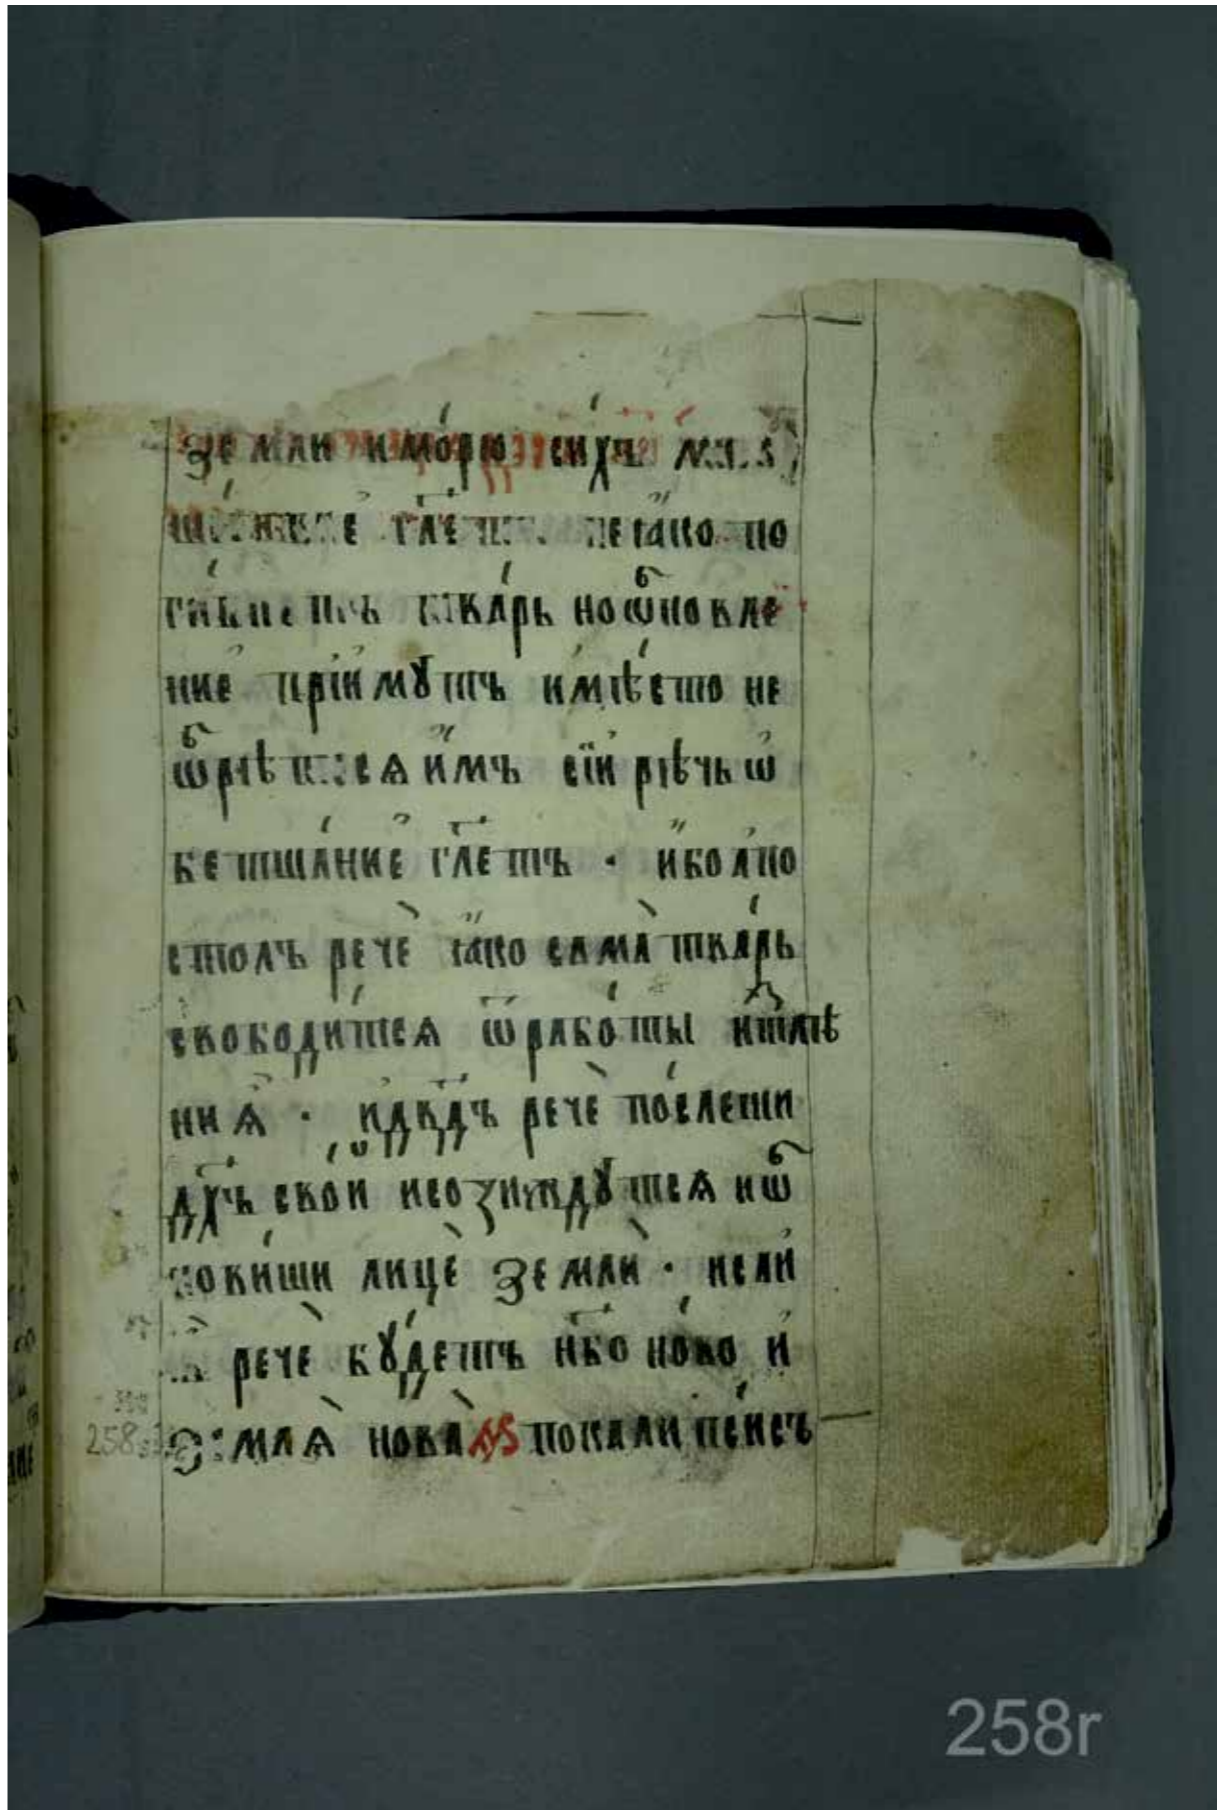 земли и мо́рю си́хъ
гл҃етъ не ꙗ҆́ко по
ги́бнетъ тва́рь но ѡ҆бновле
ние҆ прїи́мꙋтъ и҆мѣ́сто не
и҆́мъ сїи́ рѣчь ѡ҆
ветша́ние҆ гл҃етъ · и҆́бо а҆по
столъ речѐ ꙗ҆́ко сама̀ тва́рь
свободи́тсѧ ѿ рабо́ты и҆стлѣ
ниѧ҆ · и҆ дв҃дъ речѐ по́слеши
дх҃ъ сво́й и созиждꙋтсѧ и ѡб
нови́ши лицѐ земли̑ · и сли҆
речѐ бꙋ́детъ нб҃о но́во и҆
землѧ̀ нова̀ покали пси́съ
258
258r